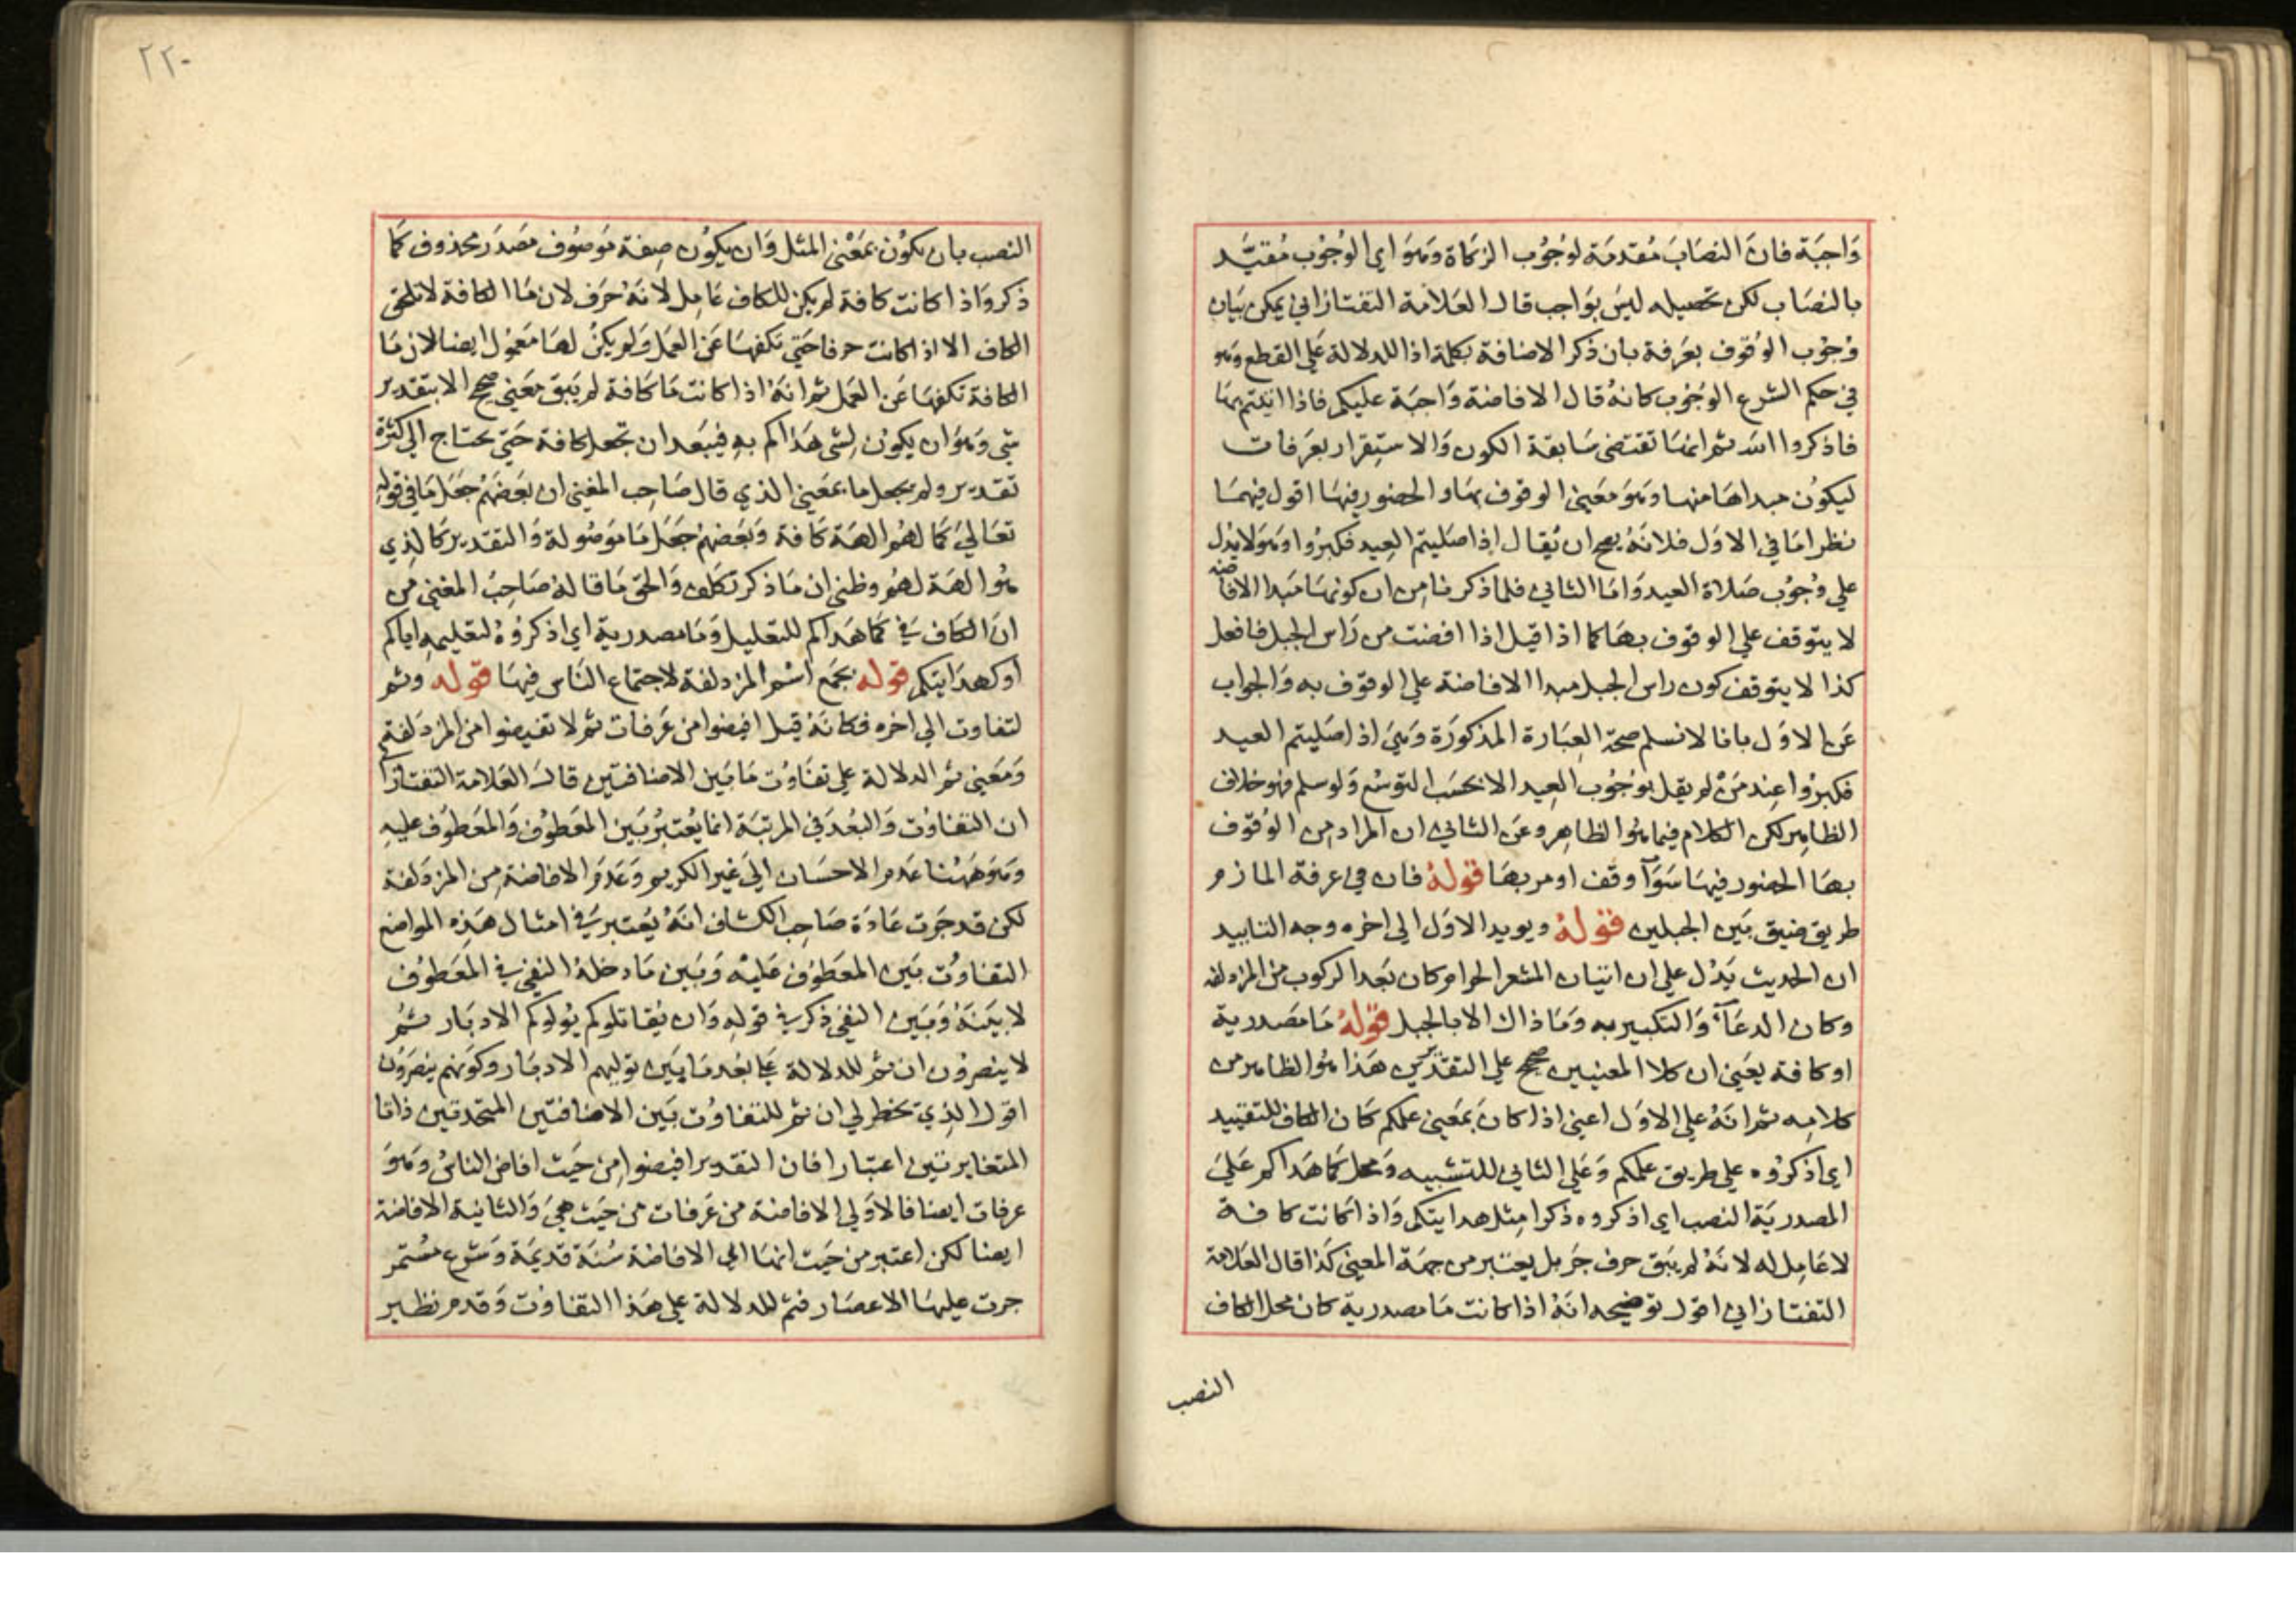 وَاجبَة فان النصَابَ مُقدمَة لوُجُوب الزكاة وَهوَ اي الوُجوُب مُقيَّد
بالنصَاب لكن تحصيله ليسَ بوَاجب قال العَلامَة التفتازاني يمكن بَيان
وُجوُب الوُقوف بعَرفة بان ذكر الافاضة بكلمة اذا للدلالة عَلي القطع وَهو
في حكم الشرع الوجوُب كانهُ قال الافاضة وَاجبَة عليكم فاذا اتيتم بهَا
فاذكروا الله ثم انهَا تقتضى سَابقة الكون وَالاستِقرار بعَرفات
ليكوُن مبداهَا منهَا وَهوَ مَعني الوقوف بهَا والحضور فيهَا اقول فيهمَا
نظر امَا في الاوَل فلانهُ يصح ان يُقال اِذا صَليتم العيد فكبرُوا وَهوَ لا يدُل
علي وُجوُب صَلاة العيد وَامَا الثاني فلما ذكرنا مِن ان كونهَا مَبدا الافاضة
لا يتوقف عَلي الوقوف بهَا كما اذا قيل اذا افضت من رَاس الجبل فافعل
كذا لا يتوقف كون راس الجبل مبدا الافاضة علي الوقوف به وَالجواب
عَن الاوَل بانا لا نسلم صحة العِبَارة المذكورَة وَهيَ اذا صَليتم العيد
فكبرُوا عِند مَن لم يقل بوُجوُب العيد الا بحسَب التوسُع وَلو سلم فهو خلاف
الظاهِر لكن الكلام فيما هوُ الظاهِر وعَن الثاني ان المرَاد مِن الوُقوف
بهَا الحضور فيهَا سَوَآ وقف او مر بهَا قولهُ فان هي عرفة المازم
طريق ضيق بَين الجبلين قولهُ ويويد الاوَل الي اخره وجه التاييد
ان الحديث يَدُل علي ان اتيان المشعر الحرام كان بَعد الركوب من المزدلفة
وكان الدعَآءُ وَالتكبير به وَمَا ذاك الا بالجبل قولهُ مَا مَصدرية
او كافة يعَني ان كلا المعنيين صحيح علي التقدّيرين هَذا هوُ الظاهر من
كلامِه ثم انهُ علي الاوَل اعني اذا كانَ بمَعني علمكم كان الكاف للتقييد
اي اذكرُوه علي طريق علمكم وَعَلي الثاني للتشبيه وَمحل كمَا هَداكم عَلي
المصدريَة النصب اي اذكروه ذكرا مِثل هدايتكم وَاذا كانت كافة
لا عَامِل له لانهُ لم يبَق حرف جَر بل يعتبر من جهَة المعني كَذا قال العَلامَة
التفتازاني اقول توضيحه انهُ اذا كانت مَا مصدرية كان محل الكاف
النصب
٢٢٠
النصب بان يكوُن بمَعْني المثل وَان يكوُن صِفة مَوصوُف مصَدَر محذوف كمَا
ذكر وَاذا كانت كافة لم يكن للكاف عَامِل لانهُ حَرَف لان مَا الكافة لا تلحق
الكاف الا اذا كانت حرفا حَتي تكفهَا عَن العَمل وَلم يكنُ لهَا مَعموُل ايضا لان مَا
الكافة تكفهَا عَن العَمل ثم انهُ اذا كانت مَا كافة لم يَبق مَعني صحيح الا بتقدير
شي وَهوَ ان يكون لشى هَداكم بهِ فيبَعد ان تجعل كافة حَتي يحتاج الي كثرة
تقدير ولم يجعل ما بمَعني الذي قال صَاحب المغني ان بَعضهُم جَعَل مَا في قوله
تعَالي كَمَا لهُم الهَة كافة وَبَعضهُم جَعَل مَا مَوصُولة وَالتقدير كالذي
هوُ الهَة لهُم وظني ان مَا ذكر تكلف وَالحق مَا قالهُ صَاحِبُ المغني من
انَ الكاف في كما هَداكم للتعليل وَمَا مصدرية اي اذكرُوهُ لتعليمهِ اياكم
او لهدايتكم قوله بجمَع اسُم المزدلفة لاجتماع الناس فيهَا قوله وثم
لتفاوت الي اخره فكانهُ قيل افيضوا من عَرفات ثم لا تفيضوا من المزدَلفة
وَمَعني ثم الدلالة علي تفَاوُت مَا بَين الافاضتين قال العَلامة التفتازاني
ان التفاوُت وَالبُعد في المرتبَة انما يُعتَبرُ بَين المعَطوُف وَالمعَطوُف عليهِ
وَهوَ هَهُنا عَدم الاحسَان الي غير الكريم وَعَدمَ الافاضة مِن المزدَلفة
لكن قد جَرت عَادَة صَاحِب الكشاف انهُ يُعتبر في امثال هَذِه المواضع
التفاوُت بَين المعَطوُف عَليْه وَبَين مَا دخلهُ النفي في المعَطوُف
لا بينَهُ وَبَين النفي ذكر في قولهِ وَان يُقاتلوكم يُولوكم الادبَار ثمُ
لا ينصرُون ان ثم للدلالة علي بُعد مَا بَين توليهم الادبَار وكوَنهم ينصَرُون
اقول الذي يخطر لي ان ثم للتفاوُت بَين الافاضتين المتحدتين ذاتا
المتغايرتين اعتبَارا فان التقدير افيضوا مِن حَيث افاض الناسُ وَهوَ
عرفات ايضا فالاوَلي الافاضة من عَرفات من حَيث هيَ وَالثانية الافاضة
ايضا لكن اعتبر من حَيث انهَا اي الافاضة سُنَة قديمَة وَشرع مُستمر
جرت عليهَا الاعصَار فثم للدلالة علي هَذا التفاوُت وَقد مر نظير